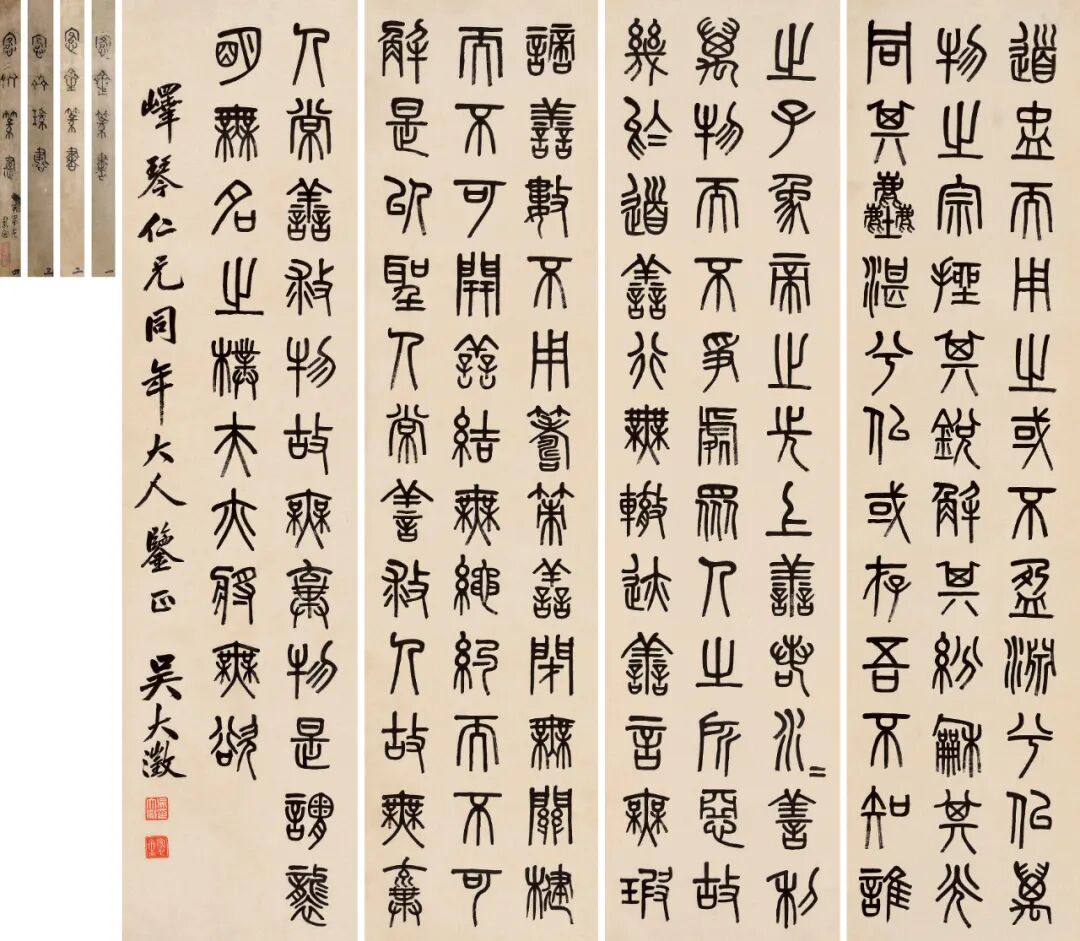 道盅而用之或不盈淵兮佀萬
物之宗挫其銳解其紛龢其光
同其塵湛兮佀或存吾不知誰
之子象帝之先上善若水=善利
萬物而不爭處眾人之所惡故
幾於道善行無轍迹善言無瑕
謫善數不用籌策善閉無關楗
而不可開善結無繩約而不可
解是以聖人常善救人故無棄
人常善救物故無棄物是謂襲
明無名之樸夫亦將無欲
嶧琴仁兄同年大人鑒正 吳大澂
愙齋篆書 一
愙齋篆書 二